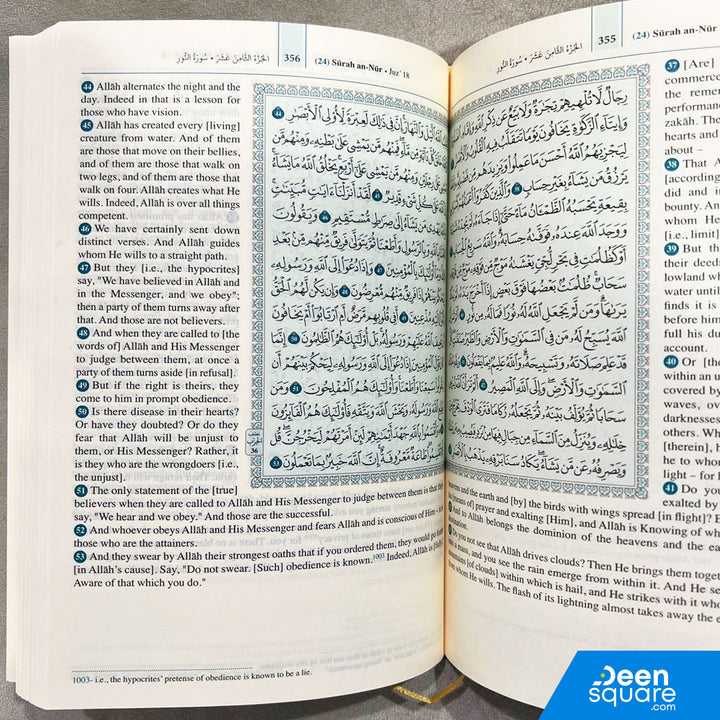 356
(24) Sūrah an-Nūr • Juz' 18
الجزء الثامن عشر • سورة النور
44 Allāh alternates the night and the
day. Indeed in that is a lesson for
those who have vision.
45 Allāh has created every [living]
creature from water. And of them
are those that move on their bellies,
and of them are those that walk on
two legs, and of them are those that
walk on four. Allāh creates what He
wills. Indeed, Allāh is over all things
competent.
46 We have certainly sent down
distinct verses. And Allāh guides
whom He wills to a straight path.
47 But they [i.e., the hypocrites]
say, "We have believed in Allāh and
in the Messenger, and we obey";
then a party of them turns away after
that. And those are not believers.
48 And when they are called to [the
words of] Allāh and His Messenger
to judge between them, at once a
party of them turns aside [in refusal].
49 But if the right is theirs, they
come to him in prompt obedience.
50 Is there disease in their hearts?
Or have they doubted? Or do they
fear that Allāh will be unjust to
them, or His Messenger? Rather, it
is they who are the wrongdoers [i.e.,
the unjust].
51 The only statement of the [true]
believers when they are called to Allāh and His Messenger to judge between them is that they
say, "We hear and we obey." And those are the successful.
52 And whoever obeys Allāh and His Messenger and fears Allāh and is conscious of Him – it is
those who are the attainers.
53 And they swear by Allāh their strongest oaths that if you ordered them, they would go forth
[in Allāh's cause]. Say, "Do not swear. [Such] obedience is known.1003 Indeed, Allāh is [fully]
Aware of that which you do."
1003- i.e., the hypocrites' pretense of obedience is known to be a lie.
الليل والنهار إن في ذلك لعبرة لأولي الأبصر ٤٤
من ماء فمنهم من يمشي على بطنه ومنهم من
ومنهم من يمشي على أربع يخلق الله ما يشاء
شيء قدير ٤٥ لقد أنزلنا ءايت مبينت
من يشاء إلى صرط مستقيم ٤٦ ويقولون
وبالرسول وأطعنا ثم يتولى فريق منهم من بعد
أولئك بالمؤمنين ٤٧ وإذا دعوا إلى الله ورسوله
إذا فريق منهم معرضون ٤٨ وإن يكن لهم الحق
مذعنين ٤٩ أفي قلوبهم مرض أم ارتابوا أم يخافون
الله عليهم ورسوله بل أولئك هم الظلمون ٥٠
المؤمنين إذا دعوا إلى الله ورسوله ليحكم بينهم أن
سمعنا وأطعنا وأولئك هم المفلحون ٥١ ومن
ورسوله ويخش الله ويتقه فأولئك هم الفائزون
بالله جهد أيمنهم لئن أمرتهم ليخرجن قل
طاعة معروفة إن الله خبير بما تعملون ٥٣
36
355
(24) Sūrah an-Nūr
الجزء الثامن عشر • سورة النور
رجال لا تلهيهم تجرة ولا بيع عن ذكر
وإيتاء الزكوة يخافون يوما تتقلب فيه القلوب
ليجزيهم الله أحسن ما عملوا ويزيدهم
يرزق من يشاء بغير حساب ٣٨ والذين كفروا
بقيعة يحسبه الظمان ماء حتى إذا جاءه
ووجد الله عنده فوفىه حسابه والله سريع
أو كظلمت في بحر لجي يغشىه موج من فوقه
سحاب ظلمت بعضها فوق بعض إذا أخرج يده
يرىها ومن لم يجعل الله له نورا فما له من نور
الله يسبح له من في السموت والأرض والطير
قد علم صلاته وتسبيحه والله عليم بما يفعلون
السموت والأرض وإلى الله المصير
سحابا ثم يؤلف بينه ثم يجعله ركاما
خلله وينزل من السماء من جبال فيها من
ويصرفه عن من يشاء يكاد سنا برقه يذهب
37 [Are]
commerce
the remem
performance
zakāh. They
hearts and
about –
38 That A
[according
did and i
bounty. And
whom He
[i.e., limit]
39 But th
their deeds
lowland wh
water until
finds it is
before him
full his du
account.
40 Or [the
within an u
covered by
waves, ove
darknesses
others. Wh
[therein], he
he to whom
light – for h
41 Do you
heavens and the earth and [by] the birds with wings spread [in flight]? E
[means of] prayer and exalting [Him], and Allāh is Knowing of wh
And to Allāh belongs the dominion of the heavens and the eart
Do you not see that Allāh drives clouds? Then He brings them together
a mass, and you see the rain emerge from within it. And He se
[of clouds] within which is hail, and He strikes with it who
from whom He wills. The flash of its lightning almost takes away the e
Deen
square
.com